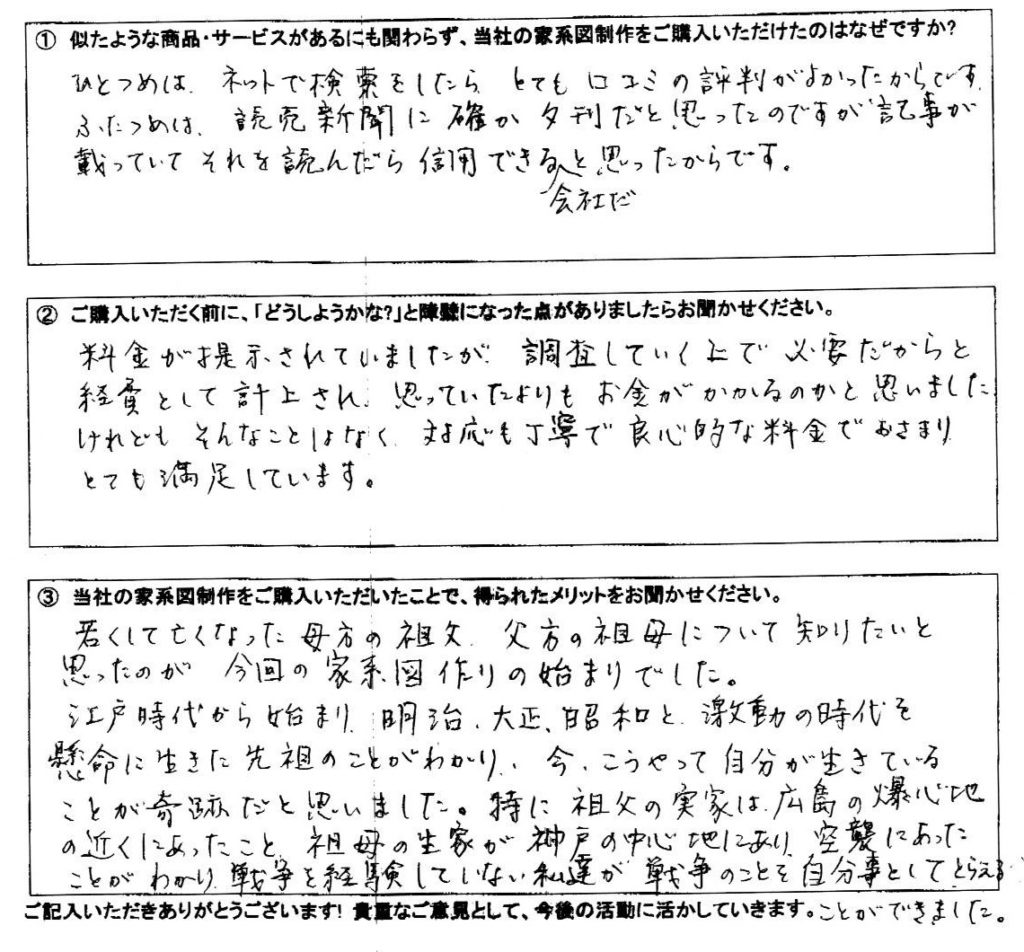 ① 似たような商品・サービスがあるにも関わらず、当社の家系図制作をご購入いただけたのはなぜですか?
ひとつめは、ネットで検索をしたら とても口コミの評判がよかったからです。
ふたつめは、読売新聞に確か夕刊だと思ったのですが記事が
載っていてそれを読んだら信用できると思ったからです。
会社だ
② ご購入いただく前に、「どうしようかな?」と障壁になった点がありましたらお聞かせください。
料金が提示されていましたが、調査していく上で必要だからと
経費として計上され、思っていたよりもお金がかかるのかと思いました
けれどもそんなことはなく、対応も丁寧で良心的な料金でおさまり
とても満足しています。
③ 当社の家系図制作をご購入いただいたことで、得られたメリットをお聞かせください。
若くして亡くなった母方の祖父、父方の祖母について知りたいと
思ったのが今回の家系図作りの始まりでした。
江戸時代から始まり、明治、大正、昭和と、激動の時代を
懸命に生きた先祖のことがわかり、今、こうやって自分が生きている
ことが奇跡だと思いました。特に祖父の実家は、広島の爆心地
の近くにあったこと、祖母の生家が神戸の中心地にあり、空襲にあった
ことがわかり、戦争を経験していない私達が戦争のことを自分事としてとらえる
ご記入いただきありがとうございます! 貴重なご意見として、今後の活動に活かしていきます。ことができました。